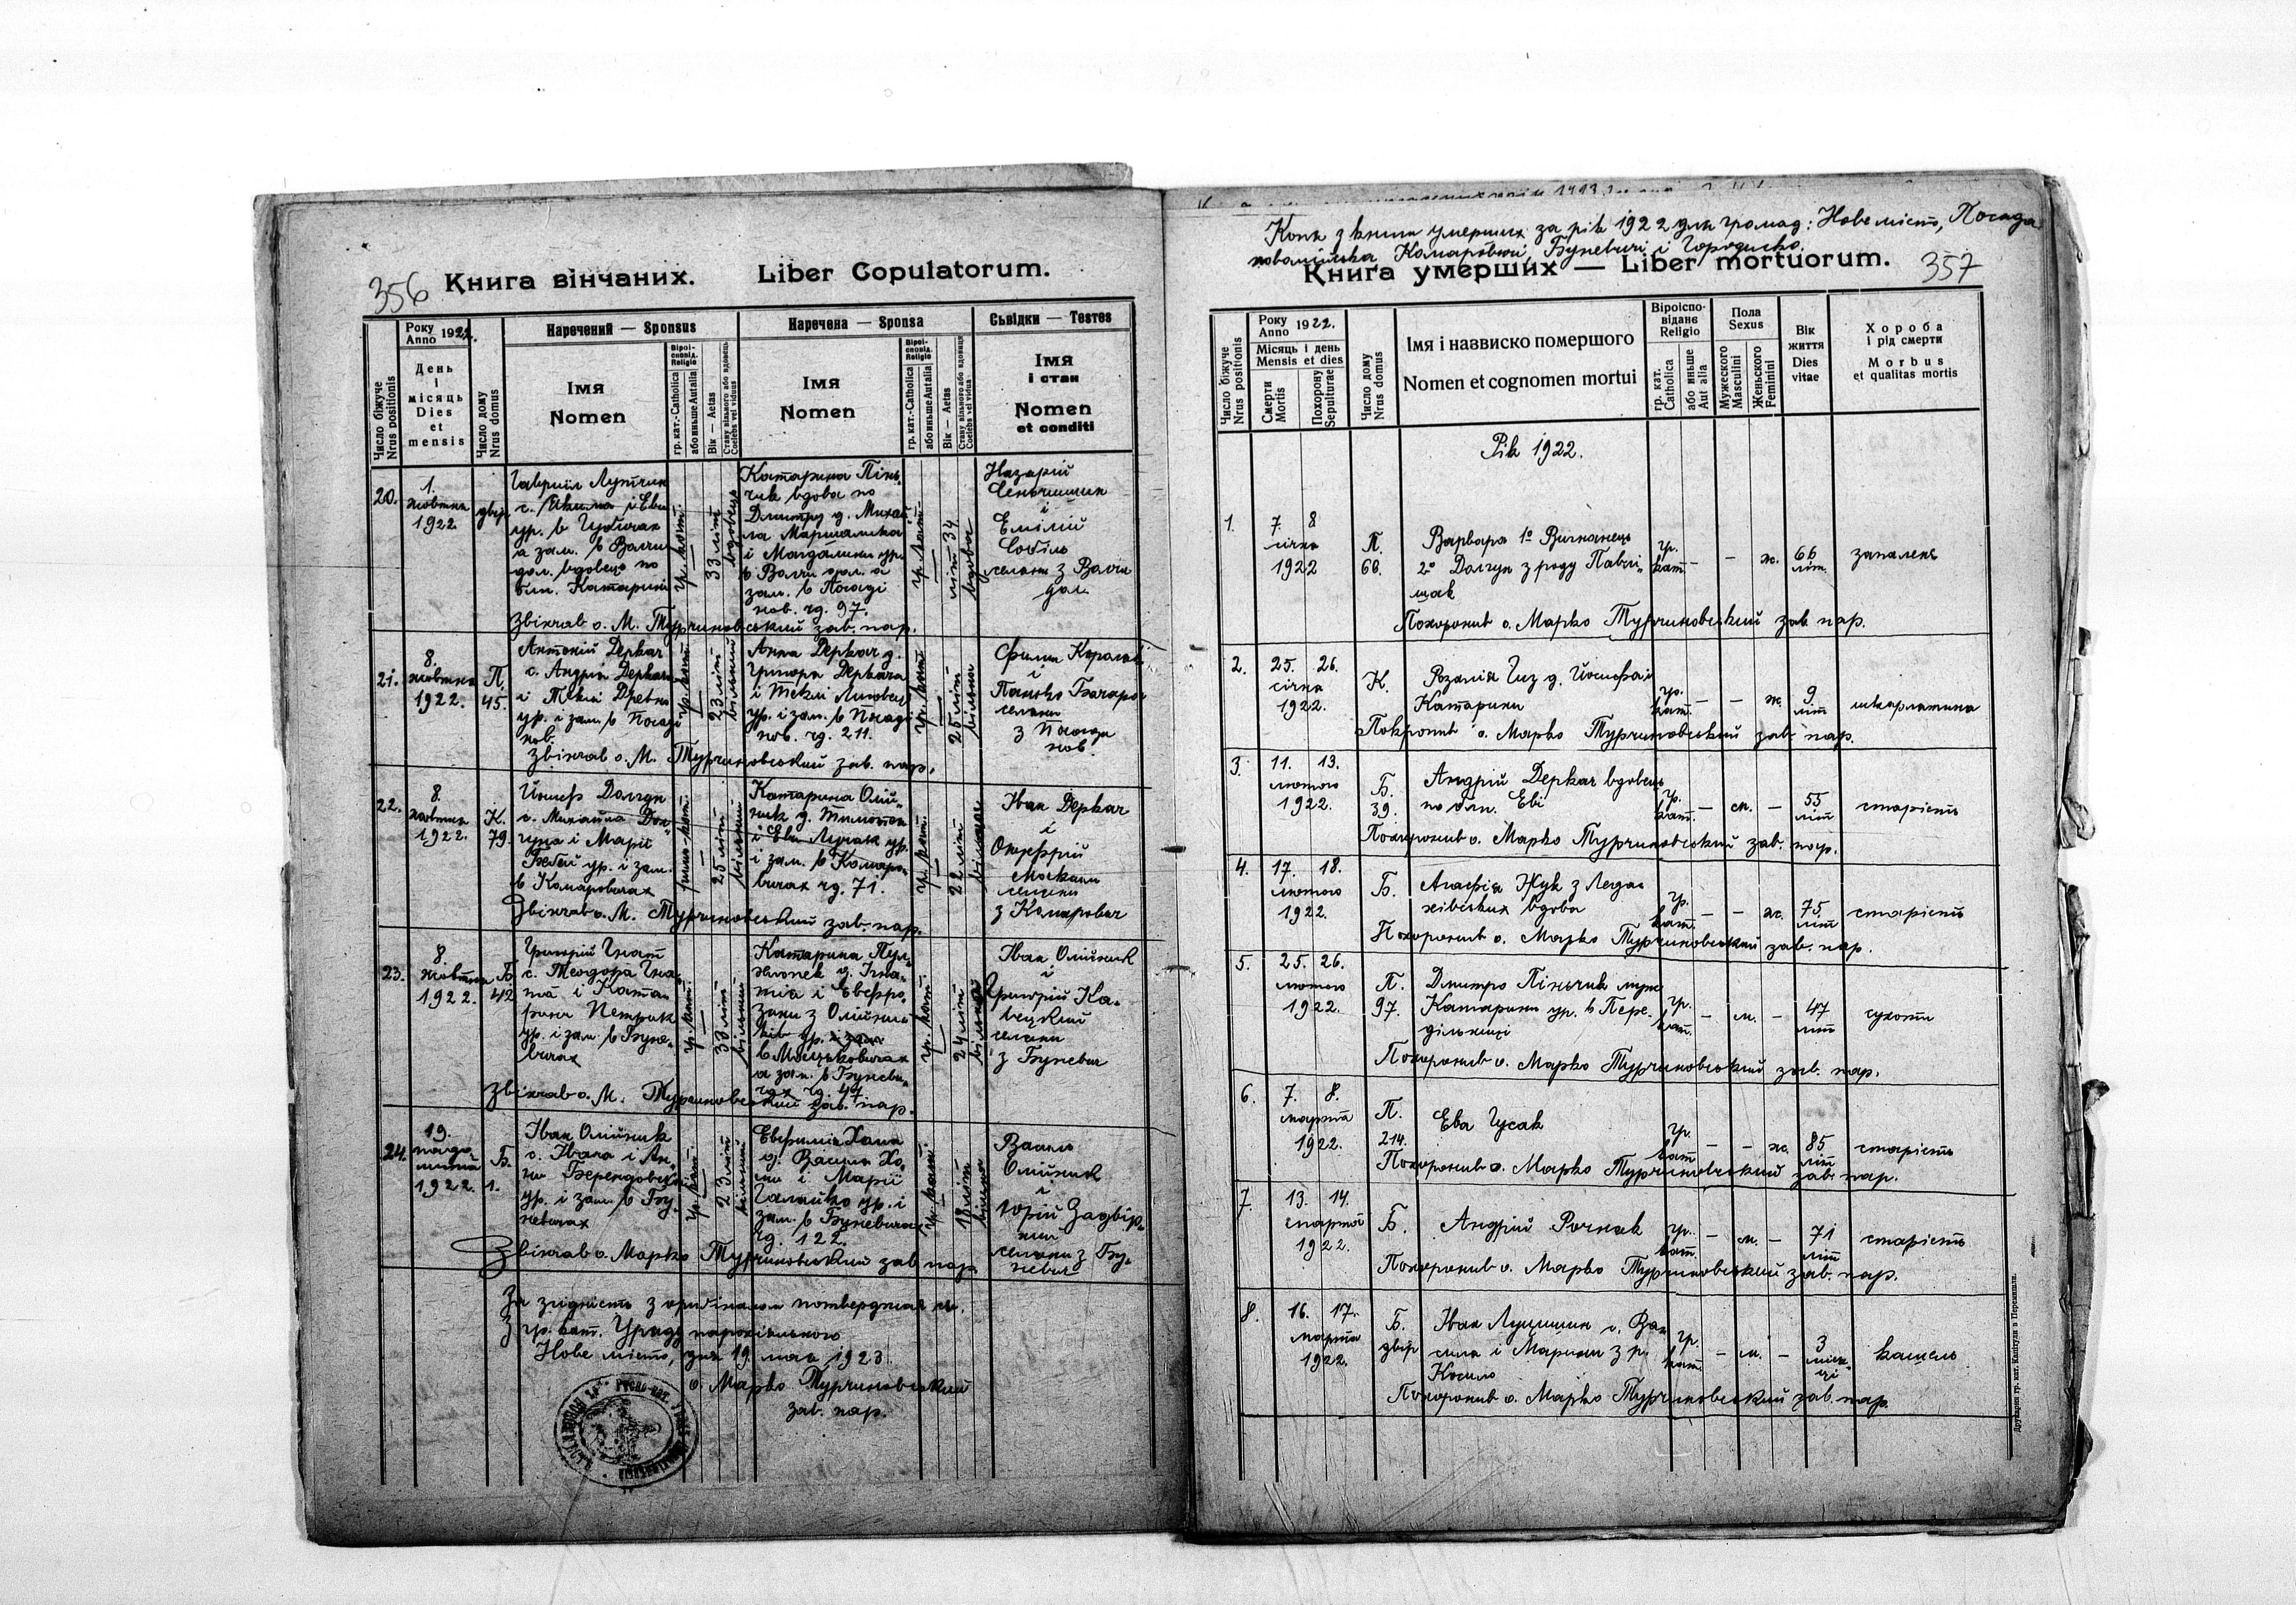 356
Книга вінчаних. Liber Copulatorum.
Число біжуче
Nrus positionis
Року
Anno 1922.
День
і
місяць
Dies
et
mensis
Число дому
Nrus domus
Наречений — Sponsus
Імя
Nomen
Віроі-
сповід.
Religio
гр. кат.-Catholica
або иньше Aut alia
Вік — Aetas
Стану вільного або вдовець
Coelebs vel viduus
Наречена — Sponsa
Імя
Nomen
Віроі-
сповід.
Religio
гр. кат.-Catholica
або иньше Aut alia
Вік — Aetas
Стану вільного або вдовиця
Coelebs vel vidua
Сьвідки — Testes
Імя
і стан
Nomen
et conditi
20.
1.
жовтня
1922
двір
Гавриїл Лутчин
с. Якима і Еви
ур. в
а зам. в Волчи
дол. вдовець по
бл. Катарині
гр. кат.
33 літ
вдовець
Катарина Пінь
чик вдова по
Дмитру д. Михаи
ла Маршалка
і Магдалини ур.
в Волчи дол. а
зам. в Посаді
нов. чд. 97.
гр. кат.
літ 34
вдова
Назарій
Сенчишин
і
Емілій
селяни з Волчи
дол.
Звінчав о. М. Турчиновський зав. пар.
21.
8.
жовтня
1922.
П.
45.
Антоній Деркач
с. Андрія Деркача
і Теклі
ур. і зам. в Посаді
нов.
гр. кат.
23 літ
вільний
Анна Деркач д.
Григора Деркача
і Теклі
ур. і зам. в Посаді
нов. чд. 211.
гр. кат.
25 літ
вільна
Филип
і
Панько
селяни
з Посади
нов.
Звінчав о. М. Турчиновський зав. пар.
22.
8.
жовтня
1922.
К.
79.
Йосиф Долгун
с. Михайла Дол-
гуна і Марії
Бебей ур. і зам.
в Комаровичах
25 літ
вільний
Катарина Олій-
ник д. Тимотея
і Еви Лучак ур.
і зам. в Комаро-
вичах чд. 71.
гр. кат.
22 літ
вільна
Іван Деркач
і
Онуфрій
селяни
з Комарович
Звінчав о. М. Турчиновський зав. пар.
23.
8.
жовтня
1922.
Б.
42
Григорій Гнат
с. Теодора Гна-
та і Ката-
рини Петрик
ур. і зам. в Буне-
вичах
гр. кат.
33 літ
вільний
Катарина Пул-
хлопек д. Ігна-
тія і Евфро-
зини з Олійни-
ків ур.
в Мощаковичах
а зам. в Буневи-
чах чд. 47
гр. кат.
24 літ
вільна
Іван Олійник
і
Григорій Ка-
вецкий
селяни
з Буневич
Звінчав о. М. Турчиновський зав. пар.
24.
19.
падо
листа
1922.
Б.
1.
Іван Олійник
с. Івана і Ан-
ни
ур. і зам. в Бу-
невичах
гр. кат.
23 літ
вільний
Евфимія Хома
д. Василя Хо-
ми і Марії
Галайко ур. і
зам. в Буневичах
чд. 122.
гр. кат.
18 літ
вільна
Василь
Олійник
і
Юрій Задвір-
ний
селяни з Бу-
невич
Звінчав о. Марко Турчиновський зав. пар.
За згідність з оригіналом потверджає ся.
З гр. кат. Уряду парохіяльного
Нове місто, дня 19 мая 1923.
о. Марко Турчиновський
зав. пар.
Копія з книги умерших за рік 1922 для громад: Нове місто, Посада
новоміська, Комаровичі, Буневичі і Городиско.
Книга умерших — Liber mortuorum.
357
Число біжуче
Nrus positionis
Року
Anno 1922.
Місяць і день
Mensis et dies
Смерти
Mortis
Похорону
Sepulturae
Число дому
Nrus domus
Імя і назвиско помершого
Nomen et cognomen mortui
Віроіспо-
відане
Religio
гр. кат.
Catholica
або иньше
Aut alia
Пола
Sexus
Мужеского
Masculini
Женьского
Feminini
Вік
життя
Dies
vitae
Хороба
і рід смерти
Morbus
et qualitas mortis
Рік 1922.
1.
7. 8
січня
1922
П.
60.
Варвара 1º Вигнанець
2º Долгун з роду Павлі-
щак
гр.
кат.
— — ж.
66
літ
запаленє
Похоронив о. Марко Турчиновський зав. пар.
2.
25. 26.
січня
1922.
К.
Розалія Гиз д. Йосифа і
Катарини
гр.
кат.
— — ж.
9
літ
шкарлятина
Похоронив о. Марко Турчиновський зав. пар.
3.
11. 13.
лютого
1922.
Б.
39.
Андрій Деркач вдовець
по бл. Еві
гр.
кат.
— м. —
55
літ
старість
Похоронив о. Марко Турчиновський зав. пар.
4.
17. 18.
лютого
1922.
Б.
Агафія Жук з Леда-
хівських вдова
гр.
кат.
— — ж.
75
літ
старість
Похоронив о. Марко Турчиновський зав. пар.
5.
25. 26.
лютого
1922.
П.
97.
Дмитро Піньчик муж
Катарини ур. в Пере-
дільниці
гр.
кат.
— м. —
47
літ
сухоти
Похоронив о. Марко Турчиновський зав. пар.
6.
7. 8.
марта
1922.
П.
214.
Ева Гусак
гр.
кат.
— — ж.
85
літ
старість
Похоронив о. Марко Турчиновський зав. пар.
7.
13. 14.
марта
1922.
Б.
Андрій Рочняк
гр.
кат.
— м. —
71
літ
старість
Похоронив о. Марко Турчиновський зав. пар.
8.
16. 17.
марта
1922.
Б.
двір
Іван Луцишин с. Ва-
силя і Марини з р.
Косило
гр.
кат.
— м. —
3
міся-
ці
кашель
Похоронив о. Марко Турчиновський зав. пар.